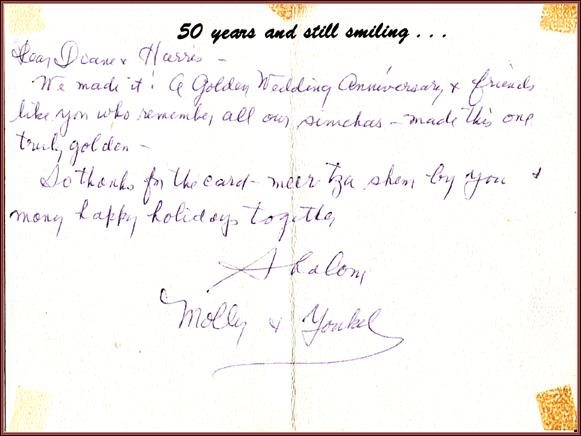 50 years and still smiling...
Dear Diane & Harris -
We made it! A Golden Wedding Anniversary & friends
like you who remember all our simchas - made this one
truly golden -
So thanks for the card - meer tza shem by you &
many happy holidays together
Shalom
Molly & Yonkel